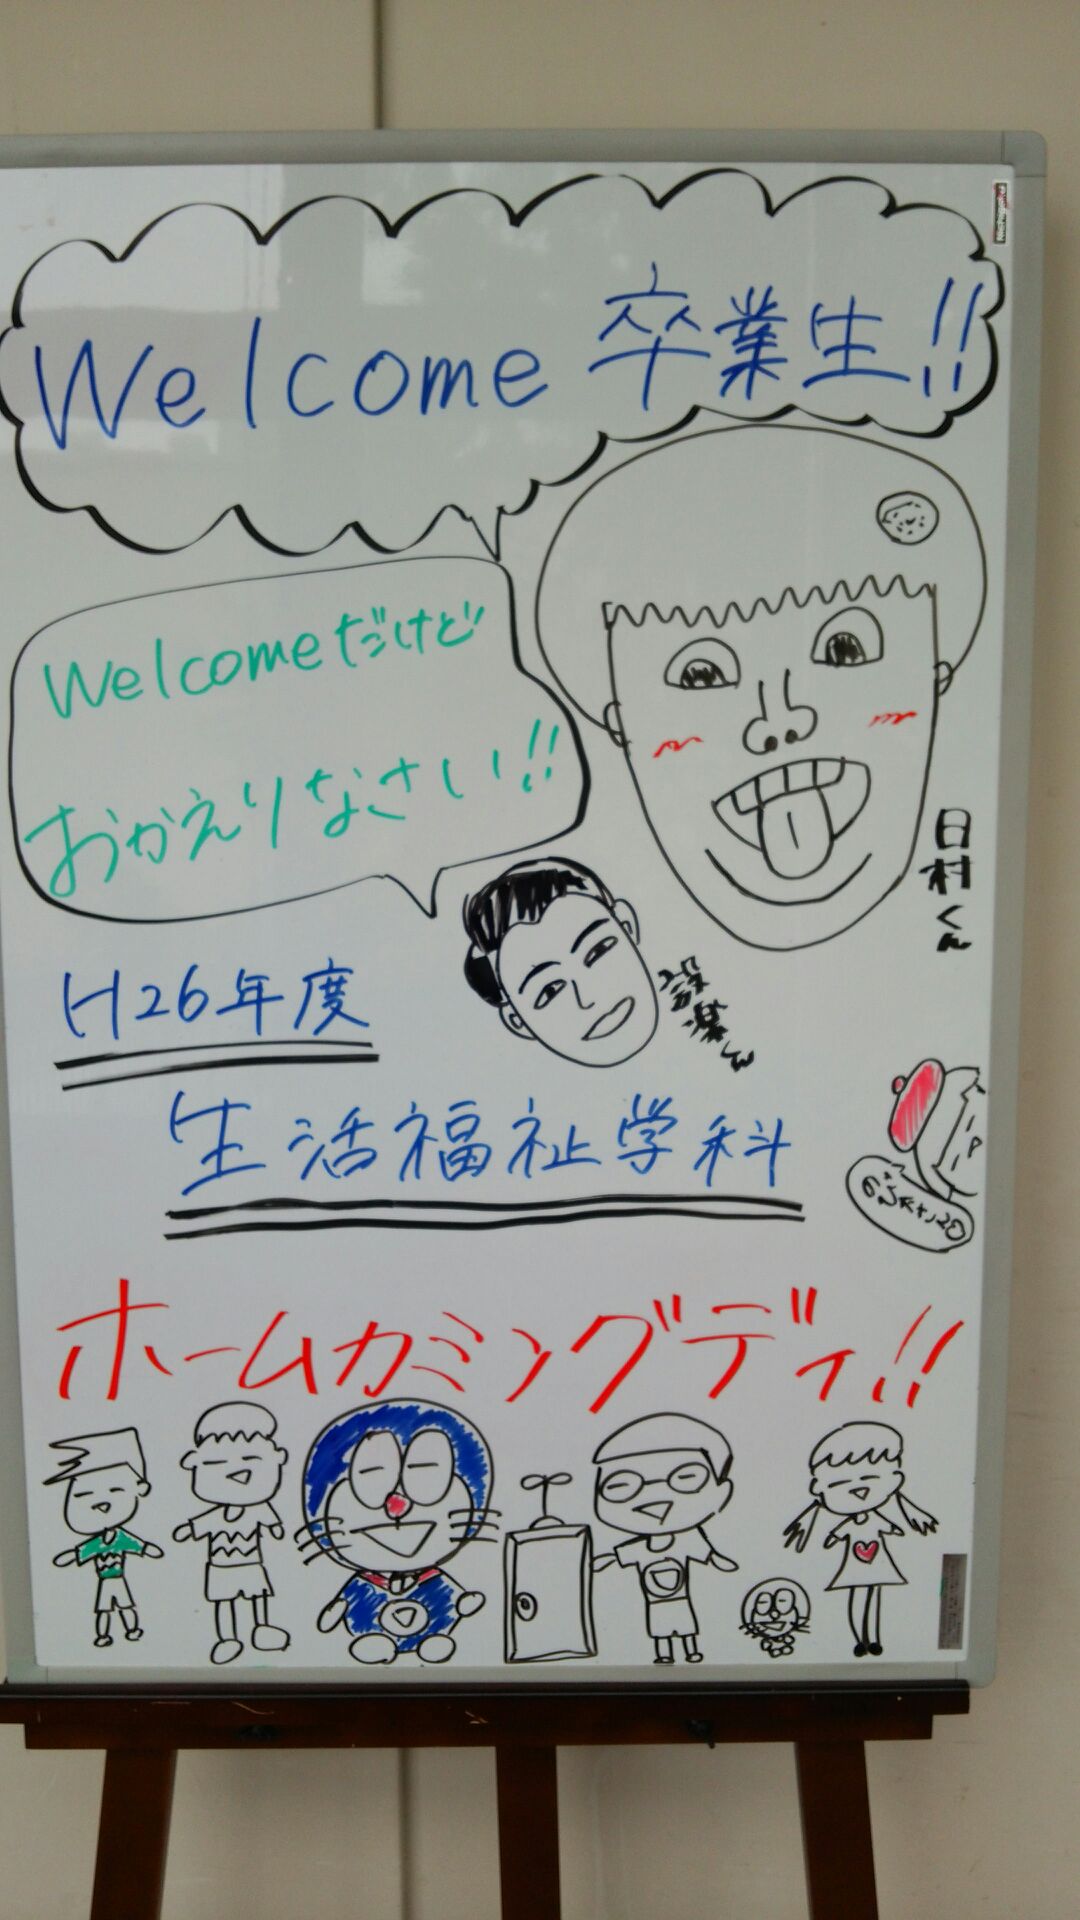 Welcome 卒業生!!
Welcomeだけど
おかえりなさい!!
日村くん
設楽くん
H26年度
生活福祉学科
ホームカミングディ!!